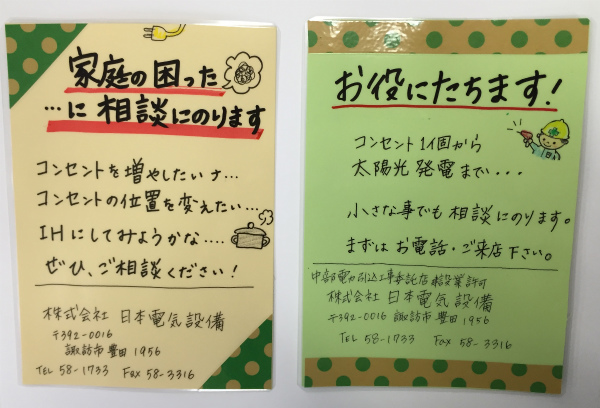 家庭の困った
…に相談にのります
コンセントを増やしたいナ…
コンセントの位置を変えたい…
IHにしてみようかな....
ぜひ、ご相談ください！
株式会社 日本電気設備
〒392-0016
諏訪市豊田1956
TEL 58-1733 Fax 58-3316
お役にたちます！
コンセント1個から
太陽光発電まで...
小さな事でも相談にのります。
まずはお電話・ご来店下さい。
中部電力引込工事委託店 建設業許可
株式会社 日本電気設備
〒392-0016
諏訪市豊田1956
TEL 58-1733 Fax 58-3316